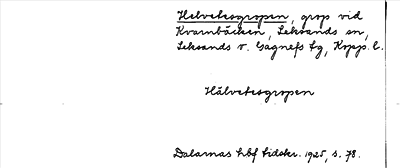 Helvetesgropen, grop vid
Kvarnbäcken, Leksands sn,
Leksands o. Gagnefs tg, Kopp. l.
Hälvetesgropen
Dalarnas hbf tidskr. 1925, s. 78.